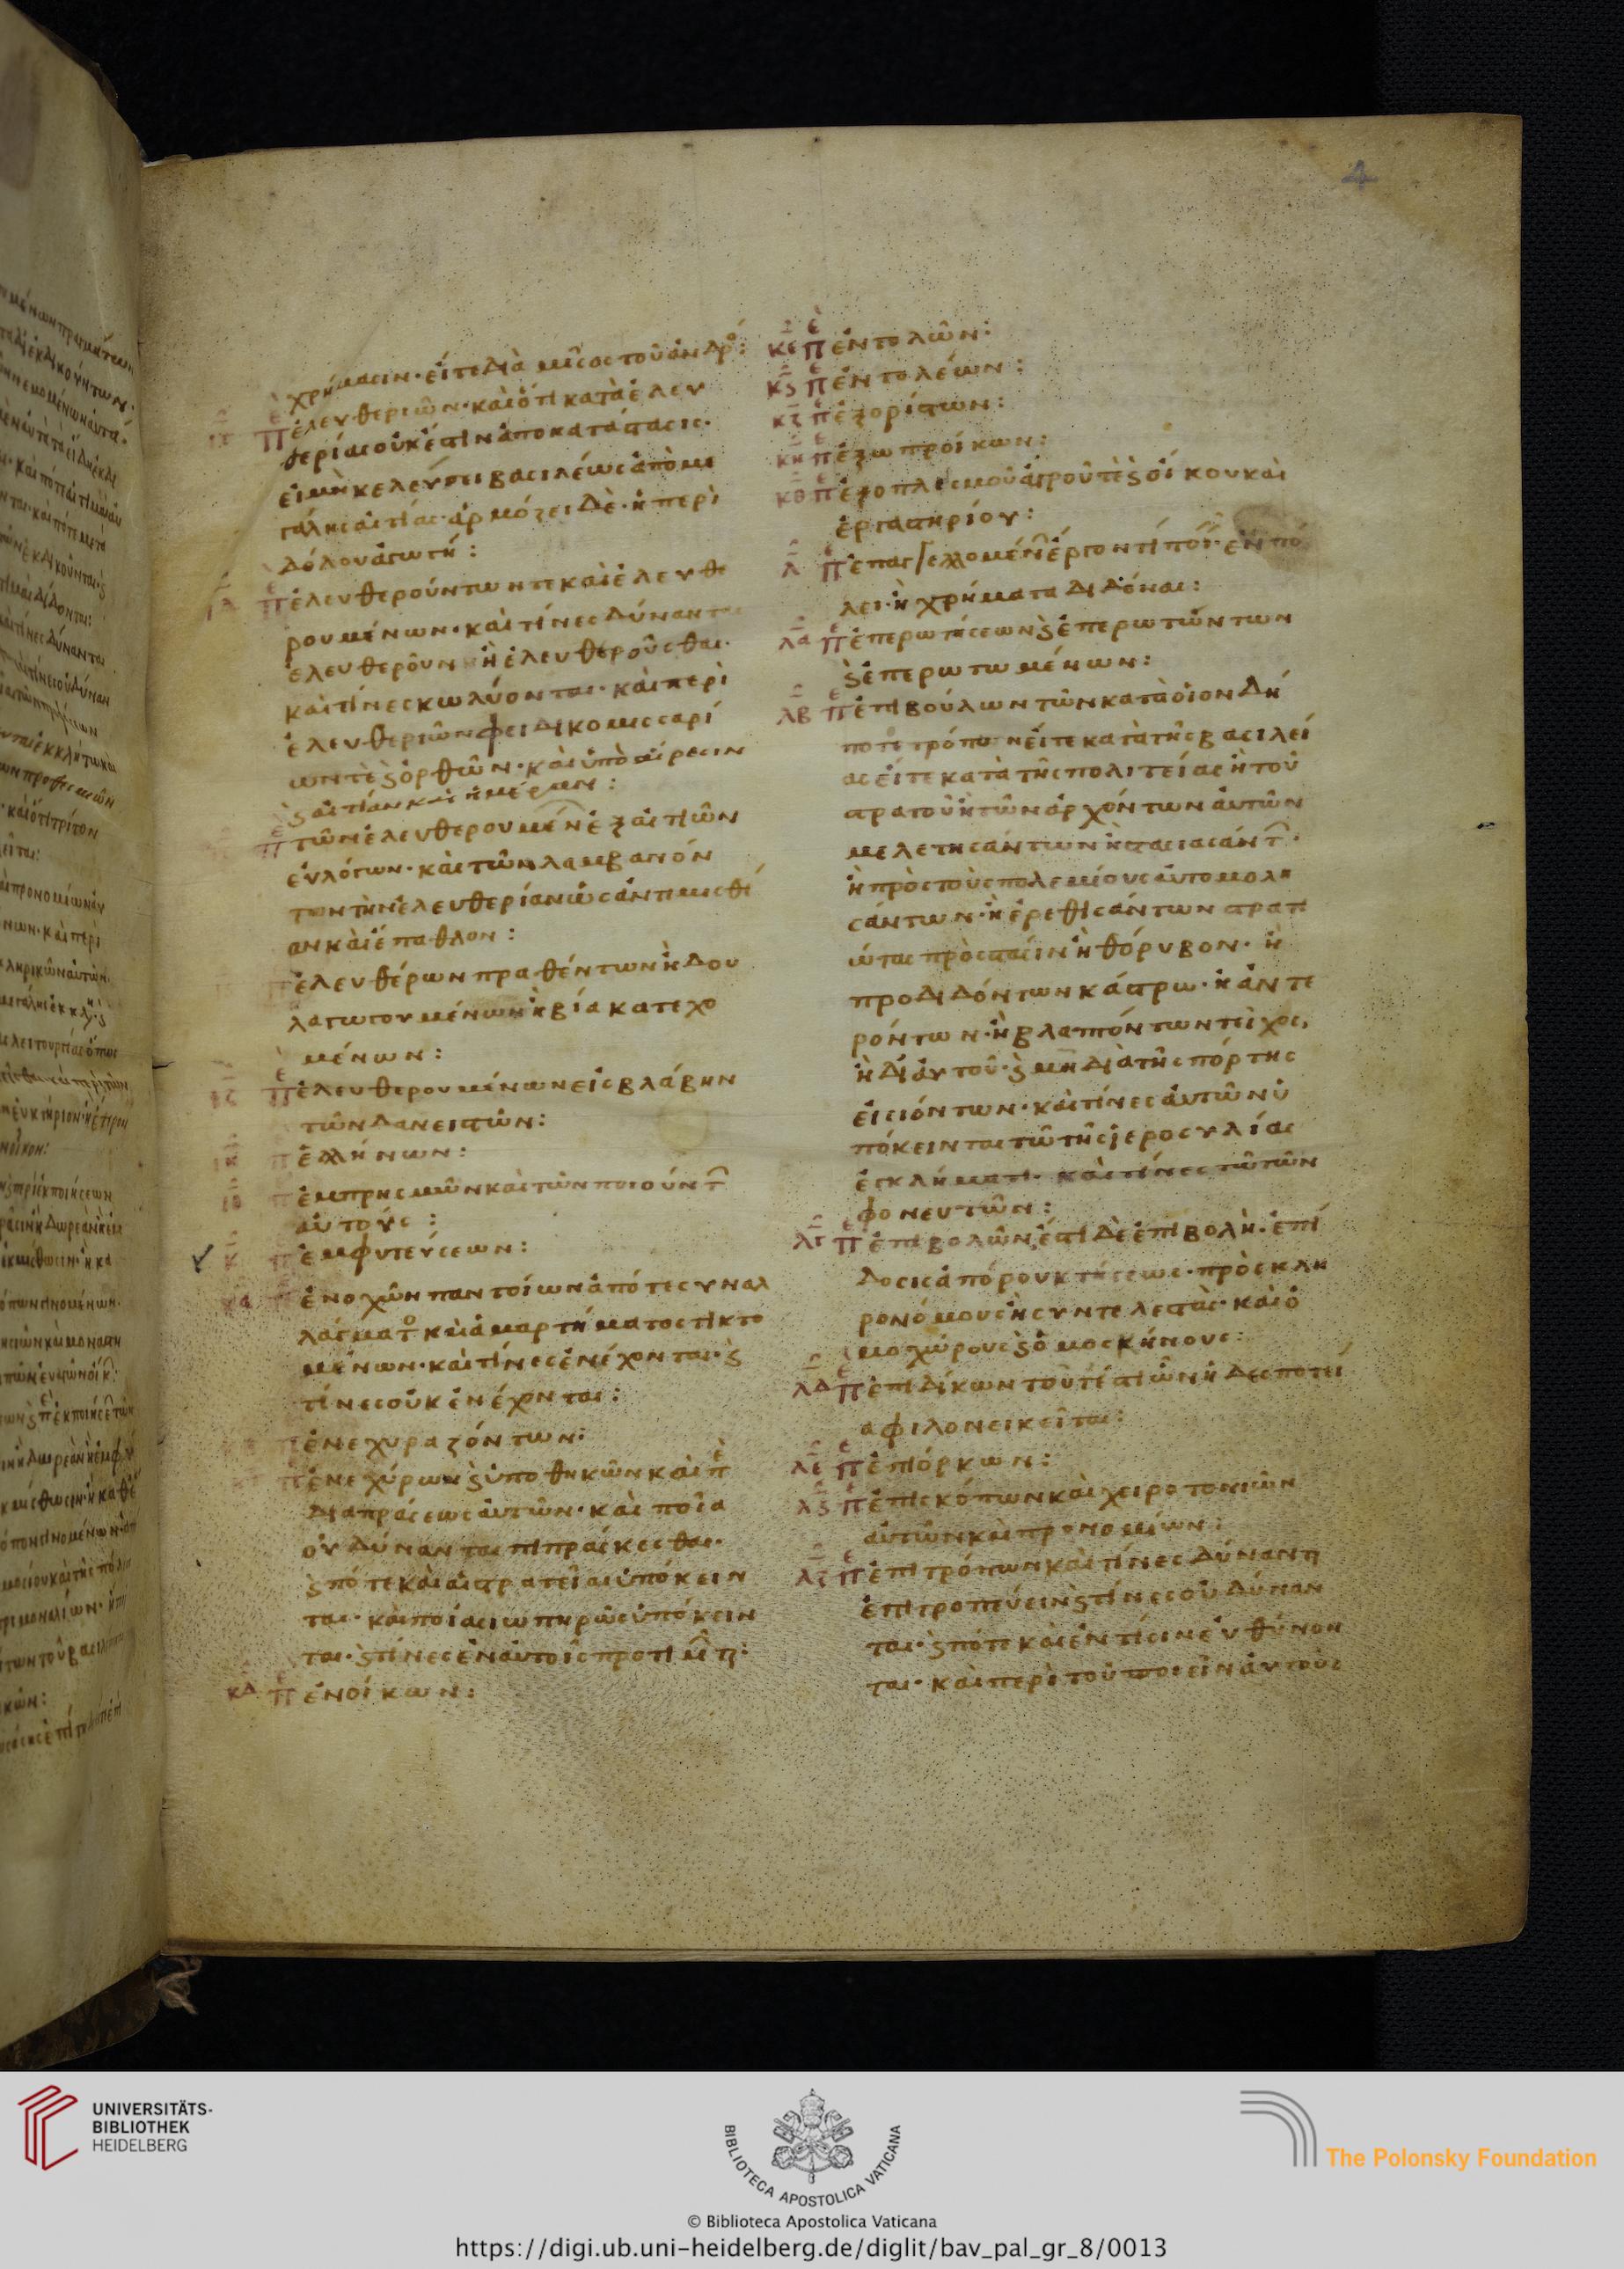 4
χρήμασιν· εἴτε διὰ μῖσος τοῦ ἀνδρό:
ιγ Πὲ ἐλευθεριῶν· καὶ ὅτι κατὰ ἐλευ
θερίας οὐκ ἔστιν ἀποκατάστασις·
εἰ μὴ κελεύσει βασιλέως ἀπὸ με
γάλης αἰτίας· ἁρμόζει δὲ· ἡ περὶ
δόλου ἀγωγή:
ιδ Πὲ ἐλευθερούντων τε καὶ ἐλευθε
ρουμένων· καὶ τίνες δύνανται
ἐλευθεροῦν ἢ ἐλευθεροῦσθαι·
καὶ τίνες κωλύονται· καὶ περὶ
ἐλευθεριῶν φειδικομισσαρί
ων τὲ ϛ ὀρθῶν· καὶ ὑπὸ αἵρεσιν
ϛ αἰτίαν καὶ ἡμέραν:
πὲ τῶν ἐλευθερουμέν ἐξ αἰτιῶν
εὐλόγων· καὶ τῶν λαμβανόν
των τὴν ἐλευθερίαν ὡς ἀντιμισθί
αν καὶ ἔπαθλον:
ἐλευθέρων πραθέντων ἢ δου
λαγωγουμένων ἢ βία κατεχο
μένων:
ιζ Πὲ ἐλευθερουμένων εἰς βλάβην
τῶν δανειστῶν:
ιη π ἑλλήνων:
ιθ π ἐμπρησμῶν καὶ τῶν ποιούντ
αὐτούς:
κ π ἐμφυτεύσεων:
κα π ἐνοχῶν παντοίων ἀπό τε συναλ
λάγματο κὶ ἁμαρτήματος τικτο
μένων· καὶ τίνες ἐνέχονται· ϛ
τίνες οὐκ ἐνέχονται:
ἐνεχυραζόντων:
π ἐνεχύρων ϛ ὑποθηκῶν καὶ πὲ
διαπράσεως αὐτῶν· καὶ ποῖα
οὐ δύνανται πιπράσκεσθαι·
ϛ πότε καὶ αἱ στρατεῖαι ὑπόκειν
ται· καὶ ποίαι σιωπηρῶς ὑπόκειν
ται· ϛ τίνες ἐν αὐτοῖς προτιμῶτ:
κδ πὲ ἐνοίκων:
κε πὲ ἐντολῶν:
κϛ πὲ ἐντολέων:
κζ πὲ ἐξορίστων:
κη πὲ ἐξωπροίκων:
κθ πὲ ἐξοπλισμοῦ ἀγροῦ τὲ ϛ οἴκου καὶ
ἐργαστηρίου:
λ πὲ ἐπαγγελλομέν ἔργον τί ποι· ἐν πό
λει· ἢ χρήματα διδόναι:
λα πὲ ἐπερωτήσεων ϛ ἐπερωτώντων
ϛ ἐπερωτωμένων:
λβ πὲ ἐπιβούλων τῶν κατὰ οἷον δή
ποτε τρόπον εἴτε κατὰ τῆς βασιλεί
ας εἴτε κατὰ τῆς πολιτείας ἢ τοῦ
στρατοῦ ἢ τῶν ἀρχόντων αὐτῶν
μελετησάντων ἢ στασιασάντ·
ἢ πρὸς τοὺς πολεμίους αὐτομολη
σάντων· ἢ ἐρεθισάντων στρατι
ώτας πρὸς στάσιν ἢ θόρυβον· ἢ
προδιδόντων κάστρω· ἢ ἀντε
ρόντων· ἢ βλαπτόντων τεῖχος,
ἢ δι αὐτοῦ· ϛ μὴ διὰ τῆς πόρτης
εἰσιόντων· καὶ τίνες αὐτῶν ὑ
πόκεινται τῶ τῆς ἱεροσυλίας
ἐγκλήματι· καὶ τίνες τῶ τῶν
φονευτῶν:
λγ πὲ ἐπιβολῶν ἔστι δὲ ἐπιβολὴ· ἐπί
δοσις ἀπόρου κτήσεως· πρὸς κλη
ρονόμους ἢ συντελεστὰς· καὶ ὁ
μοχώρους ϛ ὁμοσκήνους:
λδ πὲ ἐπιδίκων τοῦτέστι ὧν ἡ δεσποτεί
α φιλονεικεῖται:
λε πὲ ἐπιόρκων:
λϛ πὲ ἐπισκόπων καὶ χειροτονιῶν
αὐτῶν κὶ προνομίων:
λζ πὲ ἐπιτρόπων καὶ τίνες δύναντ
ἐπιτροπεύειν ϛ τίνες οὐ δύναν
ται· ϛ πότε καὶ ἐν τίσιν εὐθύνον
ται· καὶ περὶ τοῦ ποιεῖν αὐτοὺς
UNIVERSITÄTS-
BIBLIOTHEK
HEIDELBERG
BIBLIOTECA APOSTOLICA VATICANA
The Polonsky Foundation
© Biblioteca Apostolica Vaticana
https://digi.ub.uni-heidelberg.de/diglit/bav_pal_gr_8/0013